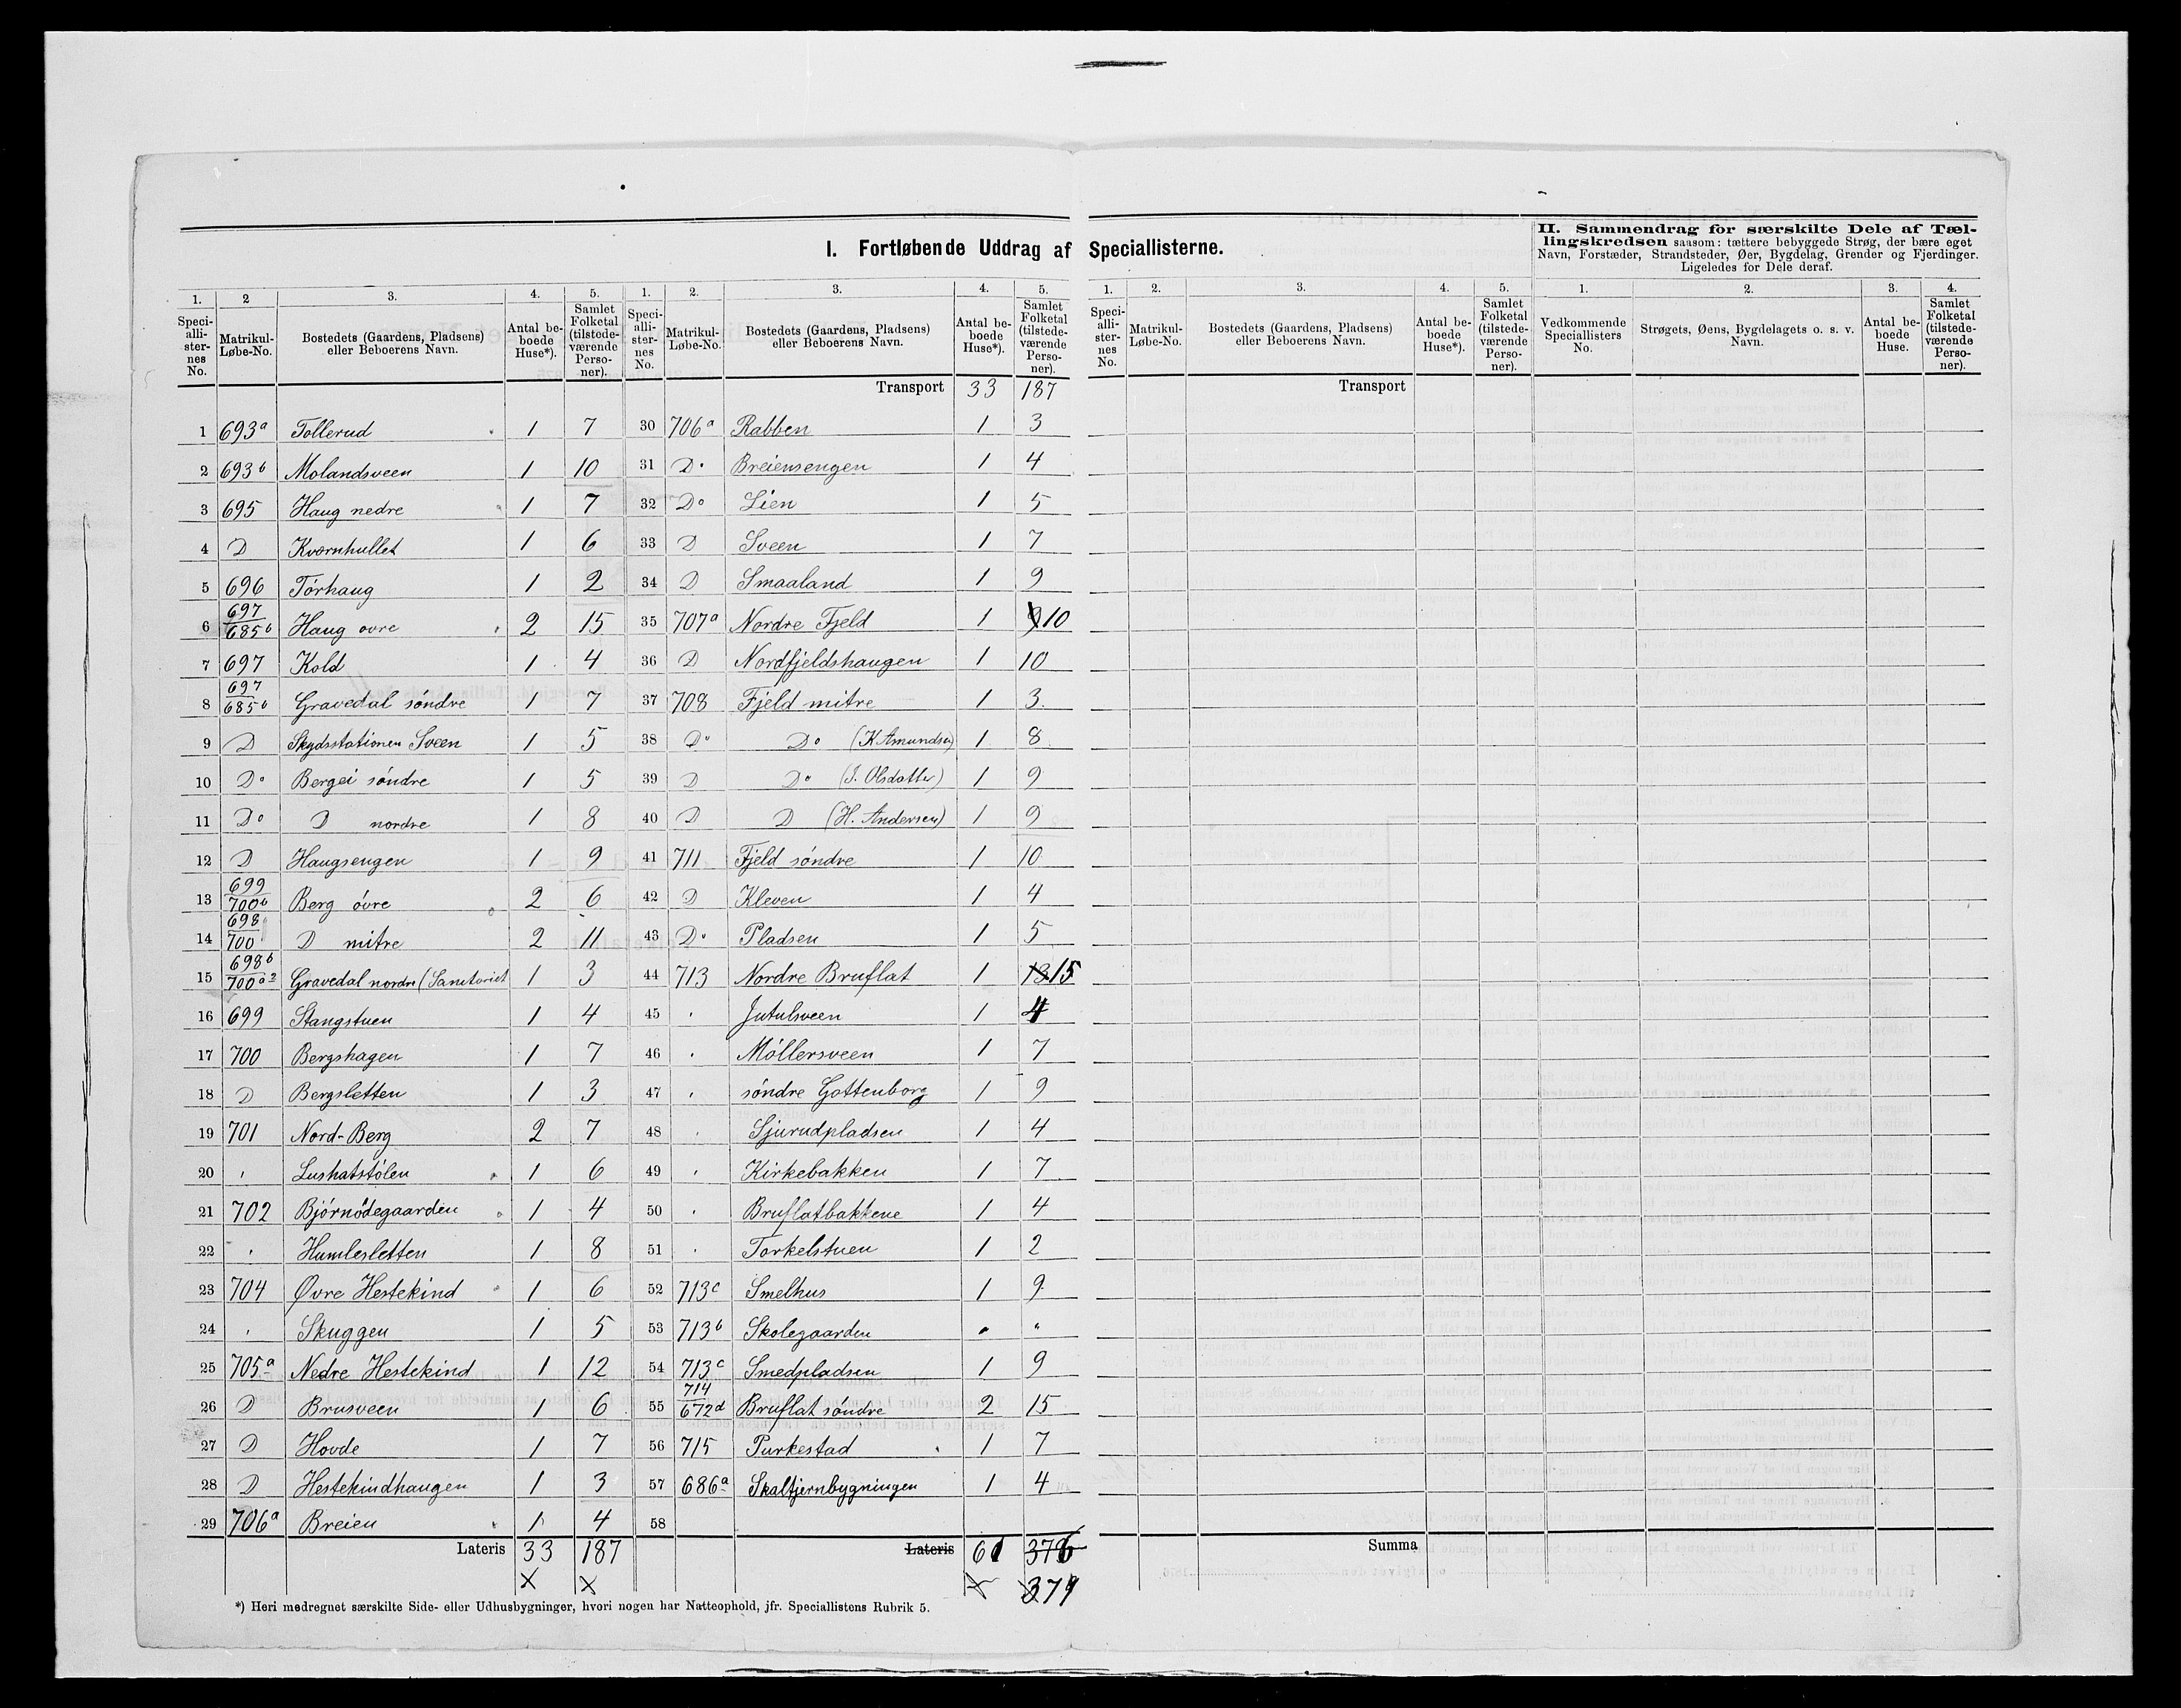 I. Fortløbende Uddrag af Speciallisterne.
II. Sammendrag for særskilte Dele af Tæl-
lingskredsen saasom: tættere bebyggede Strøg, der bære eget
Navn, Forstæder, Strandsteder, Øer, Bygdelag, Grender og Fjerdinger.
Ligeledes for Dele deraf.
1. 2 3. 4. 5. 1. 2. 3. 4. 5. 1. 2. 3. 4. 5. 1. 2. 3. 4.
Speci-alli-ster-nes No. Matrikul-Løbe-No. Bostedets (Gaardens, Pladsens) eller Beboerens Navn. Antal be-boede Huse*). Samlet Folketal (tilstede-værende Perso-ner).
Speci-alli-ster-nes No. Matrikul-Løbe-No. Bostedets (Gaardens, Pladsens) eller Beboerens Navn. Antal be-boede Huse*). Samlet Folketal (tilstede-værende Perso-ner).
Speci-alli-ster-nes No. Matrikul-Løbe-No. Bostedets (Gaardens, Pladsens) eller Beboerens Navn. Antal be-boede Huse*). Samlet Folketal (tilstede-værende Perso-ner).
Vedkommende Speciallisters No. Strøgets, Øens, Bygdelagets o. s. v. Navn. Antal be-boede Huse. Samlet Folketal (tilstede-værende Perso-ner).
Transport 33 187 Transport
1 693a Tollerud 1 7 30 706a Rabben 1 3
2 693b Molandsveen 1 10 31 Do Breiensengen 1 4
3 695 Haug nedre 1 7 32 Do Lien 1 5
4 D Kvornhullet 1 6 33 D Sveen 1 7
5 696 Tørhaug 1 2 34 D Smaaland 1 9
6 697/685b Haug øvre 2 15 35 707a Nordre Fjeld 1 9 10
7 697 Kold 1 4 36 D Nordfjeldshaugen 1 10
8 697/685b Gravedal søndre 1 7 37 708 Fjeld mitre 1 3
9 D Skydsstationen Sveen 1 5 38 Do Do (K Amundsen) 1 8
10 Do Bergei søndre 1 5 39 D Do (I. Olsdatter) 1 9
11 Do D nordre 1 8 40 D D (H. Andersen) 1 9
12 D Haugsengen 1 9 41 711 Fjeld søndre 1 10
13 699/700b Berg øvre 2 6 42 D Kleven 1 4
14 698/700 D mitre 2 11 43 Do Pladsen 1 5
15 698b/700a2 Gravedal nordre (Sanitoriet 1 3 44 713 Nordre Bruflat 1 13 15
16 699 Stangstuen 1 4 45 " Jutulsveen 1 4
17 700 Bergshagen 1 7 46 " Møllersveen 1 7
18 D Bergsletten 1 3 47 " søndre Gottenborg 1 9
19 701 Nord-Berg 2 7 48 " Sjurudpladsen 1 4
20 " Lushatstølen 1 6 49 " Kirkebakken 1 7
21 702 Bjørnødegaarden 1 4 50 " Bruflatbakkene 1 4
22 " Humlesletten 1 8 51 " Torkelstuen 1 2
23 704 Øvre Hestekind 1 6 52 713c Smelhus 1 9
24 " Skuggen 1 5 53 713b Skolegaarden " "
25 705a Nedre Hestekind 1 12 54 713c Smedpladsen 1 9
26 D Brusveen 1 6 55 714/672d Bruflat søndre 2 15
27 D Hovde 1 7 56 715 Purkestad 1 7
28 D Hestekindhaugen 1 3 57 686a Skaltjernbygningen 1 4
29 706a Breien 1 4 58
Lateris 33 187 Lateris 61 376 Summa
379
*) Heri medregnet særskilte Side- eller Udhusbygninger, hvori nogen har Natteophold, jfr. Speciallistens Rubrik 5.